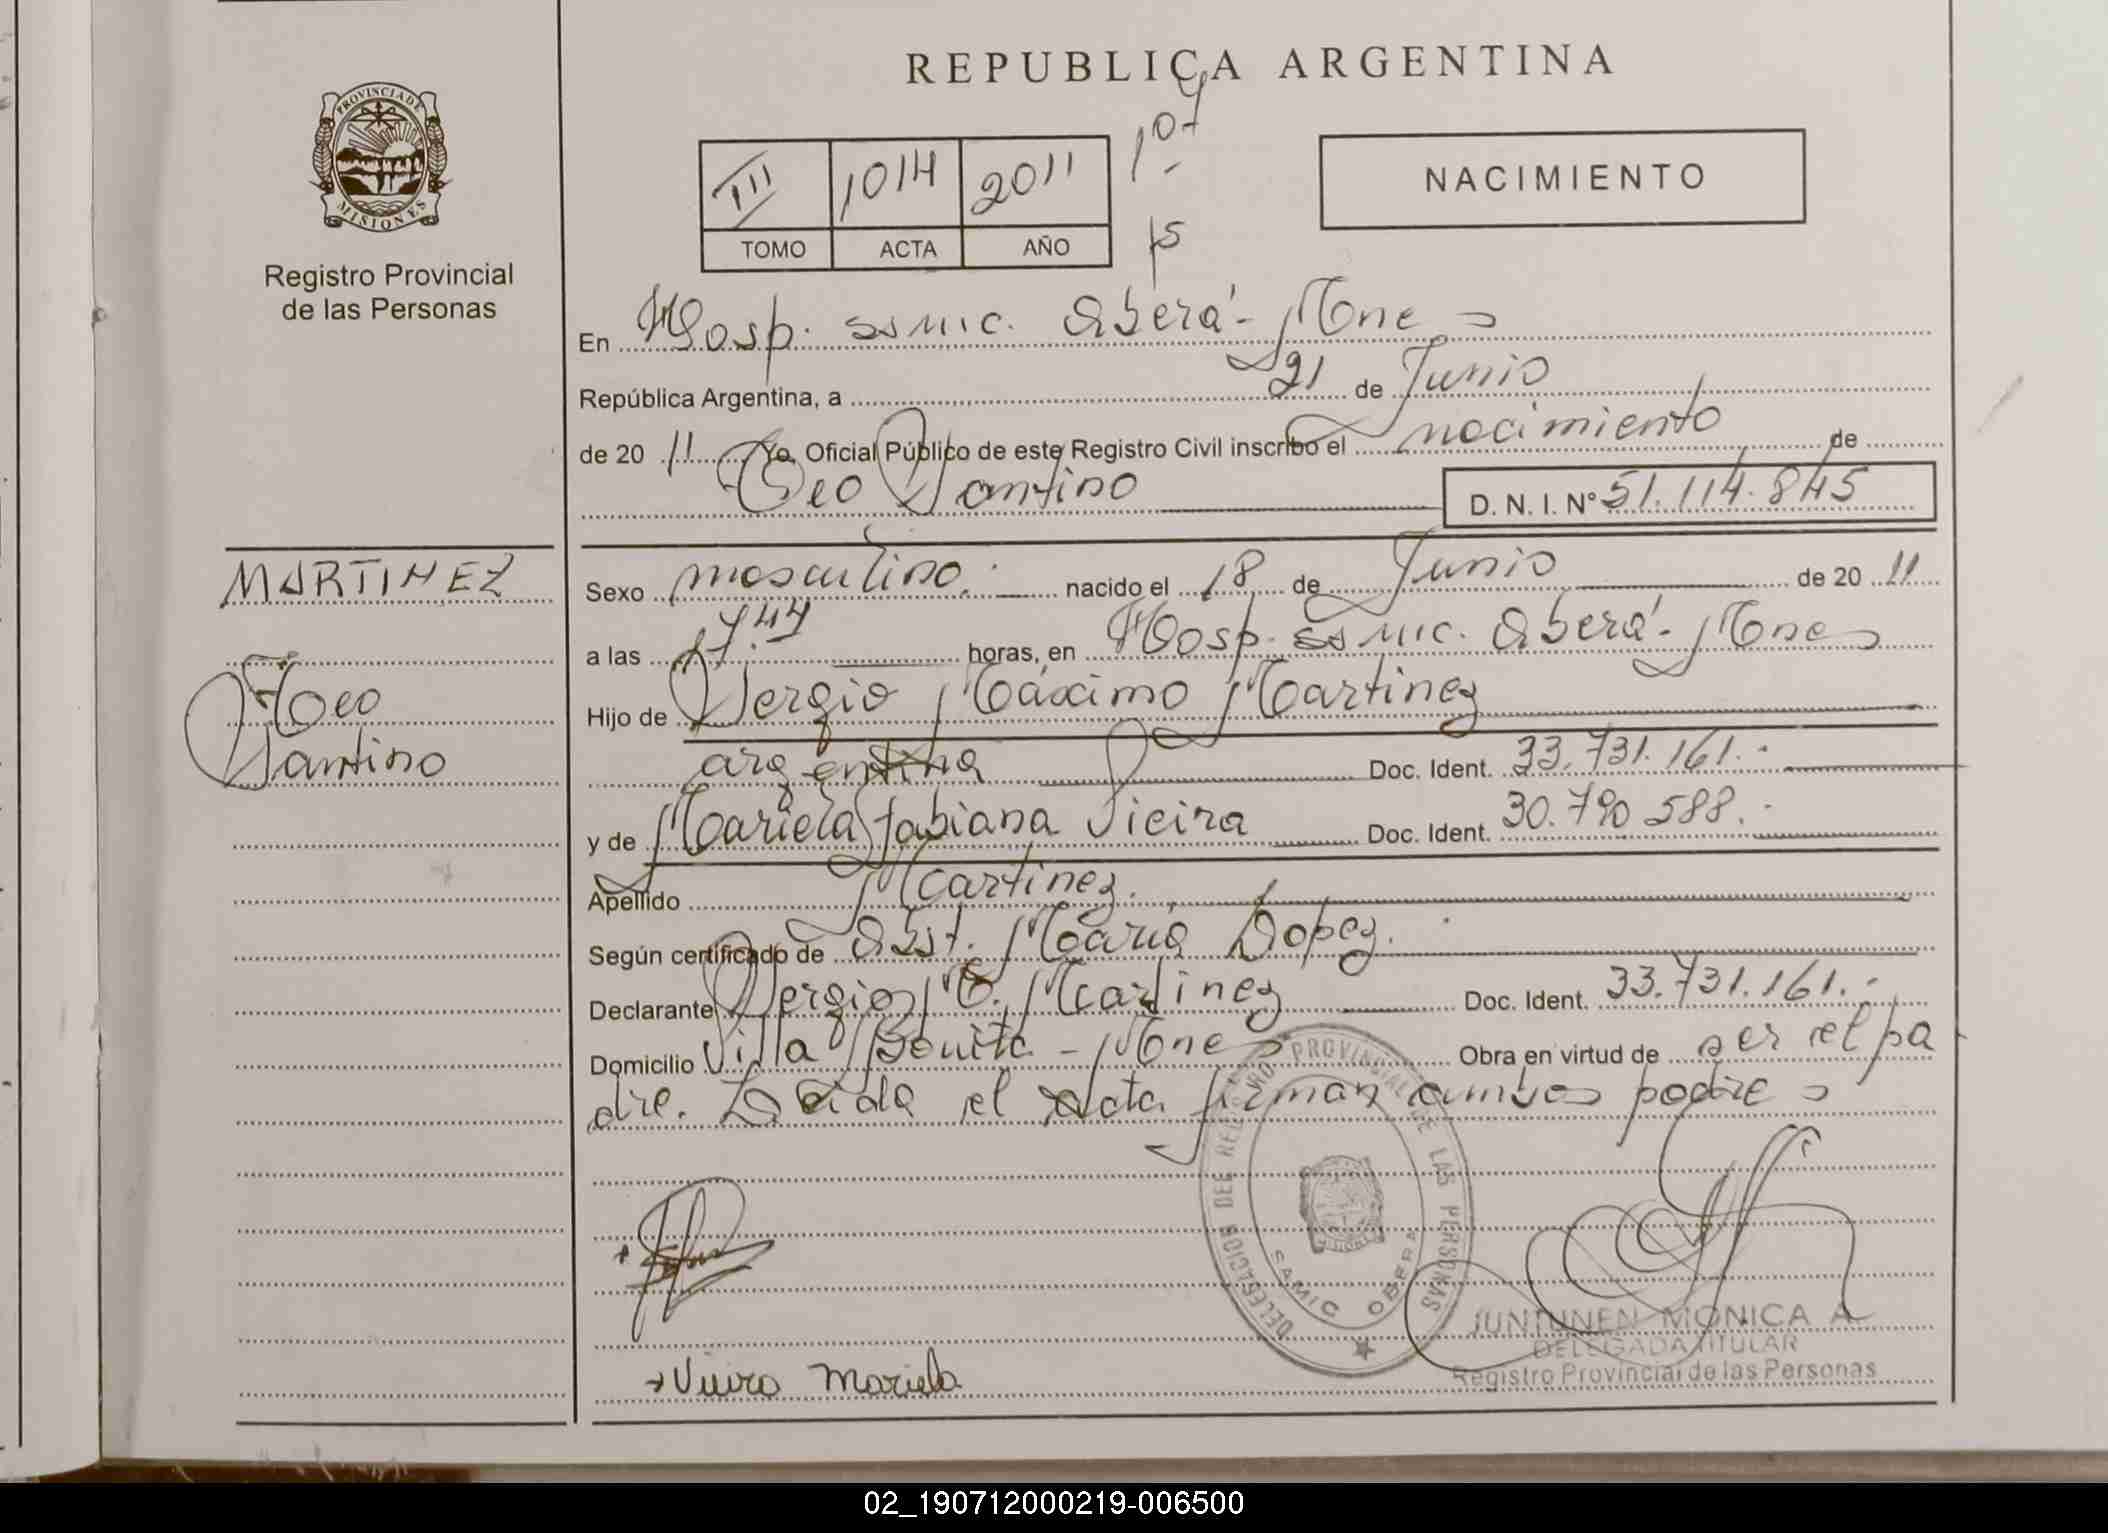 REPUBLICA ARGENTINA
PROVINCIA DE
MISIONES
Registro Provincial
de las Personas
III 1014 2011
TOMO ACTA AÑO
15
NACIMIENTO
En Hosp. ss mic. Oberá - Mnes
República Argentina, a 21 de Junio
de 20 11 Yo, Oficial Público de este Registro Civil inscribo el nacimiento de
Santino D. N. I. Nº 51.114.845
MARTINEZ
Santino
Sexo masculino. nacido el 18 de Junio de 20 11
a las 17.44 horas, en Hosp. ss mic. Oberá - Mnes
Hijo de Sergio Máximo Martinez
argentina Doc. Ident. 33.731.161.-
y de Mariela Fabiana Vieira Doc. Ident. 30.790 588.-
Apellido Martinez.
Según certificado de Obst. María Lopez.
Declarante Sergio M. Martinez Doc. Ident. 33.731.161.-
Domicilio Villa Bonita - Mnes Obra en virtud de ser el pa
dre. Leida el Acta firman ambos padres
DELEGACION DEL REGISTRO PROVINCIAL DE LAS PERSONAS
SAMIC OBERA
JUNTUNEN MONICA A.
DELEGADA TITULAR
Registro Provincial de las Personas
Vieira Mariela
02_190712000219-006500